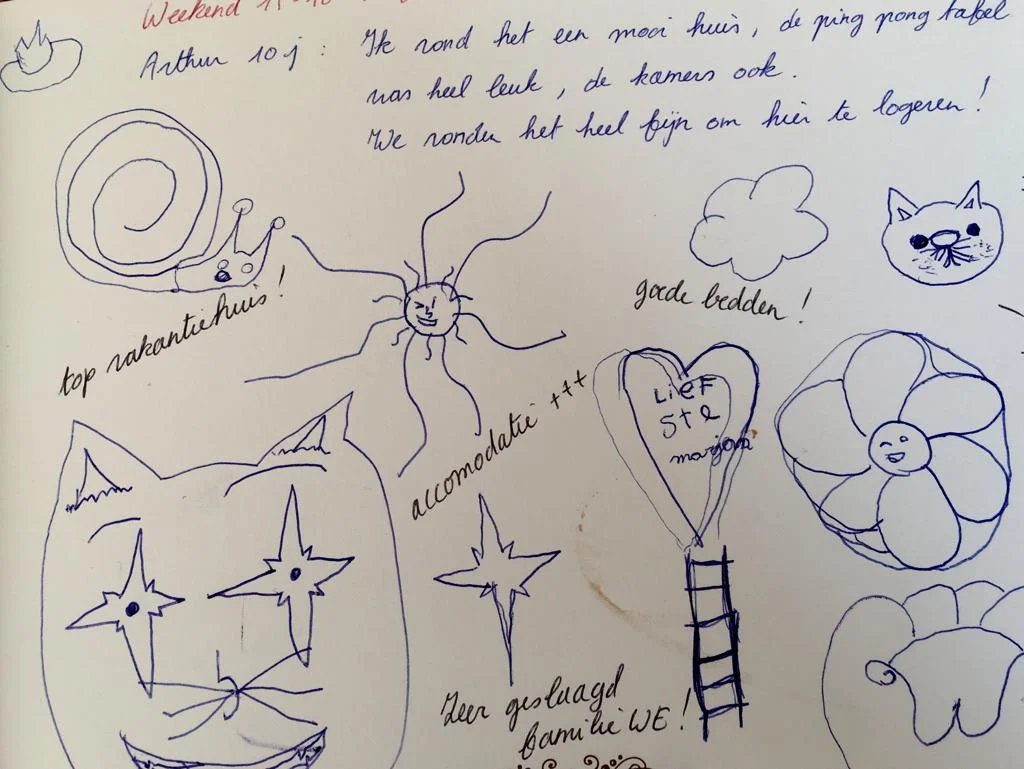 Weekend
Arthur 10 j : Ik vond het een mooi huis, de ping pong tafel
was heel leuk, de kamers ook.
We vonden het heel fijn om hier te logeren !
top vakantiehuis !
goede bedden !
accomodatie +++
Lief
Zeer geslaagd
familie WE !